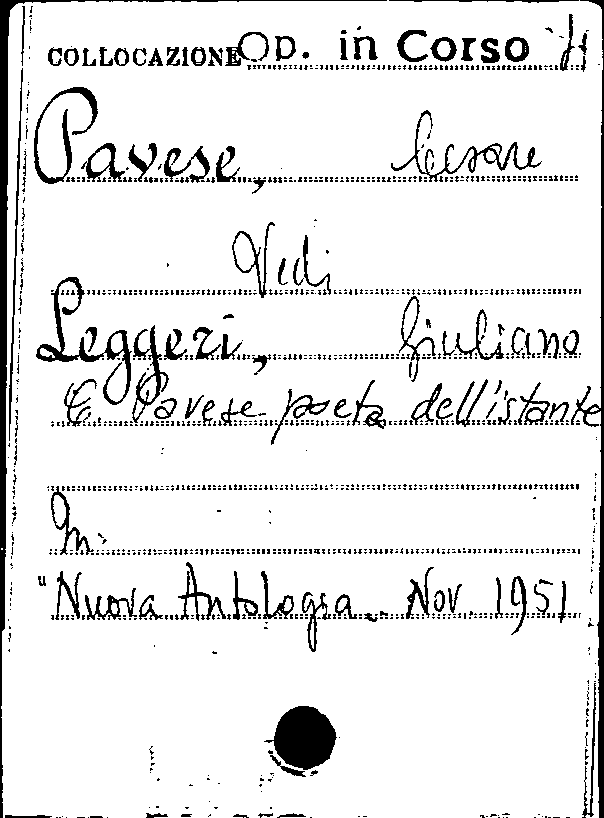 COLLOCAZIONE Op. in Corso
Pavese, Cesare
Vedi
Leggeri, Giuliano
C. Pavese poeta dell'istante
In:
"Nuova Antologia.. Nov. 1951